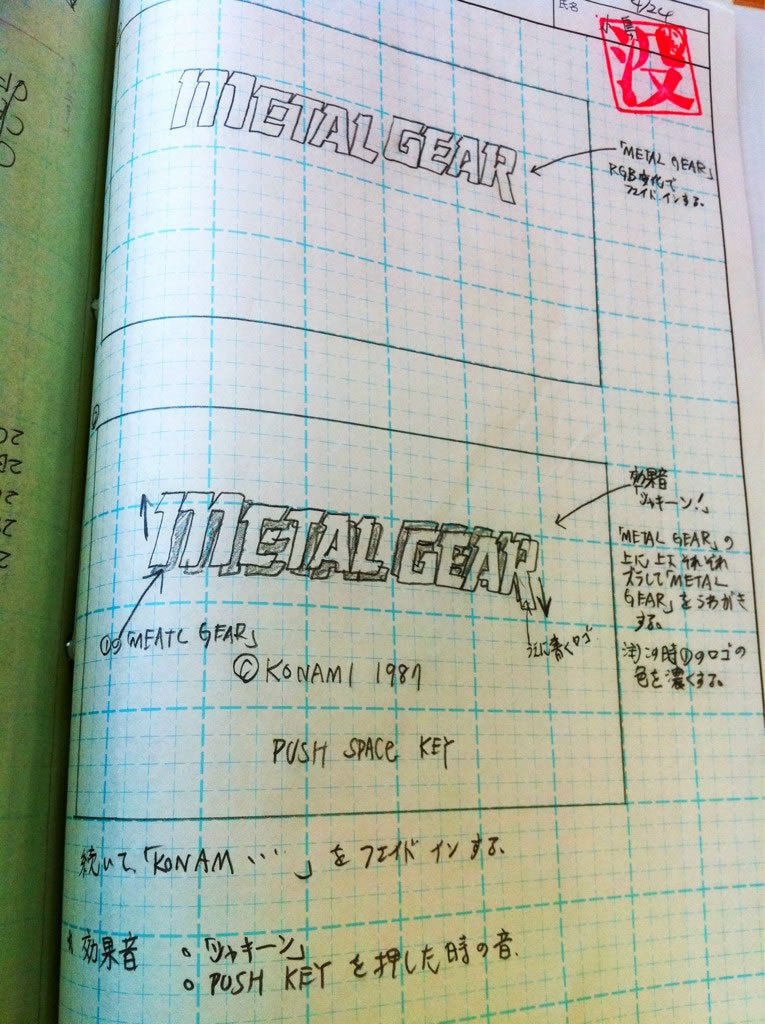 氏名
4/24
小島
没
METAL GEAR
「METAL GEAR」
RGB変化で
フェイドインする。
効果音
「ジャキーン!」
METAL GEAR
「METAL GEAR」の
上に上下それぞれ
ズラして「METAL
GEAR」をうわがき
する。
注)この時①のロゴの
色を濃くする。
①の「MEATL GEAR」
© KONAMI 1987
PUSH SPACE KEY
続いて、「KONAM…」をフェイドインする。
効果音 ○「ジャキーン」
○ PUSH KEY を押した時の音.